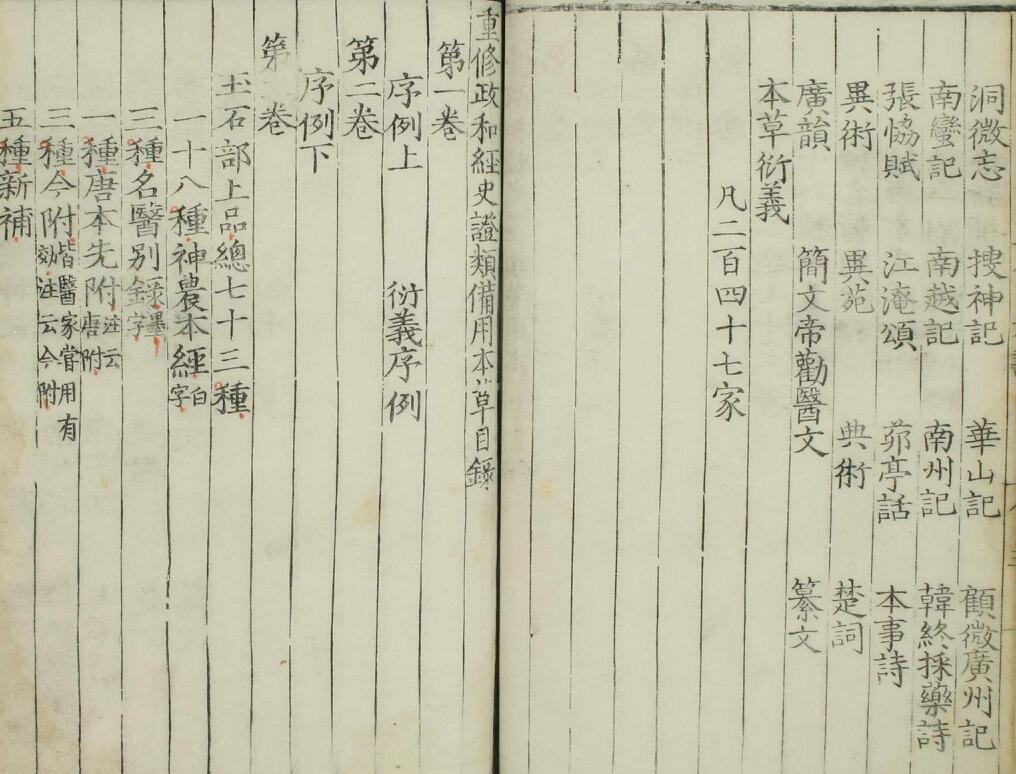 洞微志 搜神記 華山記 顧微廣州記
南蠻記 南越記 南州記 韓終採藥詩
張恊賦 江淹頌 茆亭話 本事詩
異術 異苑 典術 楚詞
廣韻 簡文帝勸醫文 纂文
本草衍義
凡二百四十七家
重修政和經史證類備用本草目錄
第一卷
序例上 衍義序例
第二卷
序例下
第 卷
玉石部上品總七十三種
一十八種神農本經白字
三種名醫別錄墨字
一種唐本先附注云唐附
三種今附皆醫家嘗用有効注云今附
五種新補